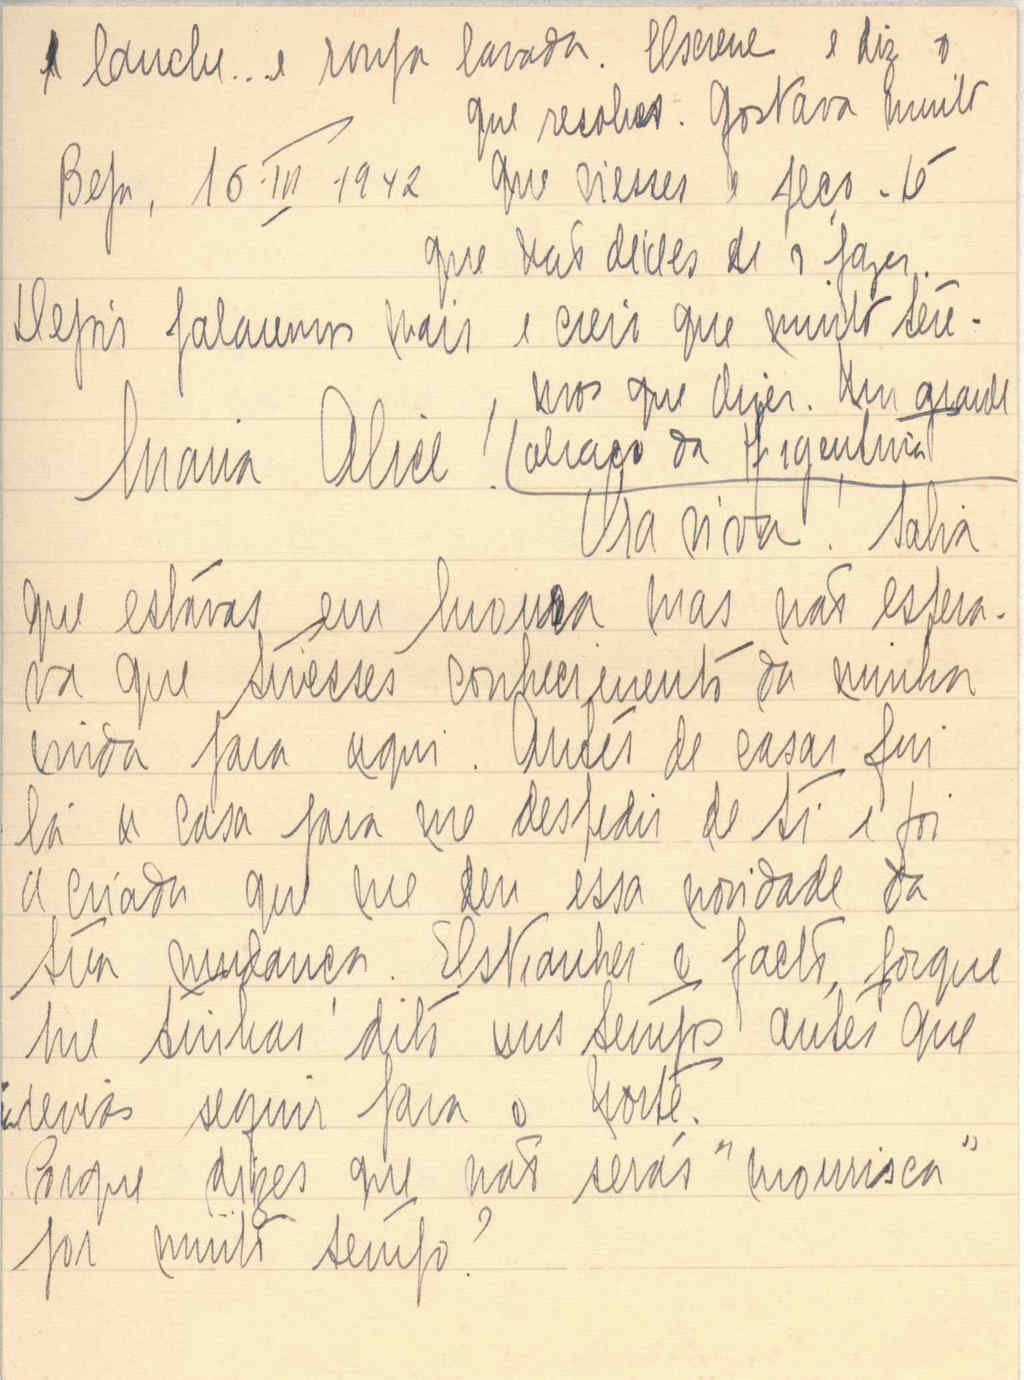 e lanche... e roupa lavada. Escreve e diz o
que resolves. Gostava muito
Beja, 16-III-1942 que viesses e peço-te
que não deixes de o fazer.
Depois falaremos mais e creio que muito tere-
mos que dizer. Um grande
Maria Alice! abraço da Argentina
Ora viva! Sabia
que estávas em Moura mas não espera-
va que tivesses conhecimento da minha
vinda para aqui. Antes de casar fui
lá a casa para me despedir de ti e foi
a criada que me deu essa novidade da
tua mudança. Estranhei o facto, porque
me tinhas dito uns tempos antes que
devias seguir para o Norte.
Porque dizes que não serás "mourisca"
por muito tempo?